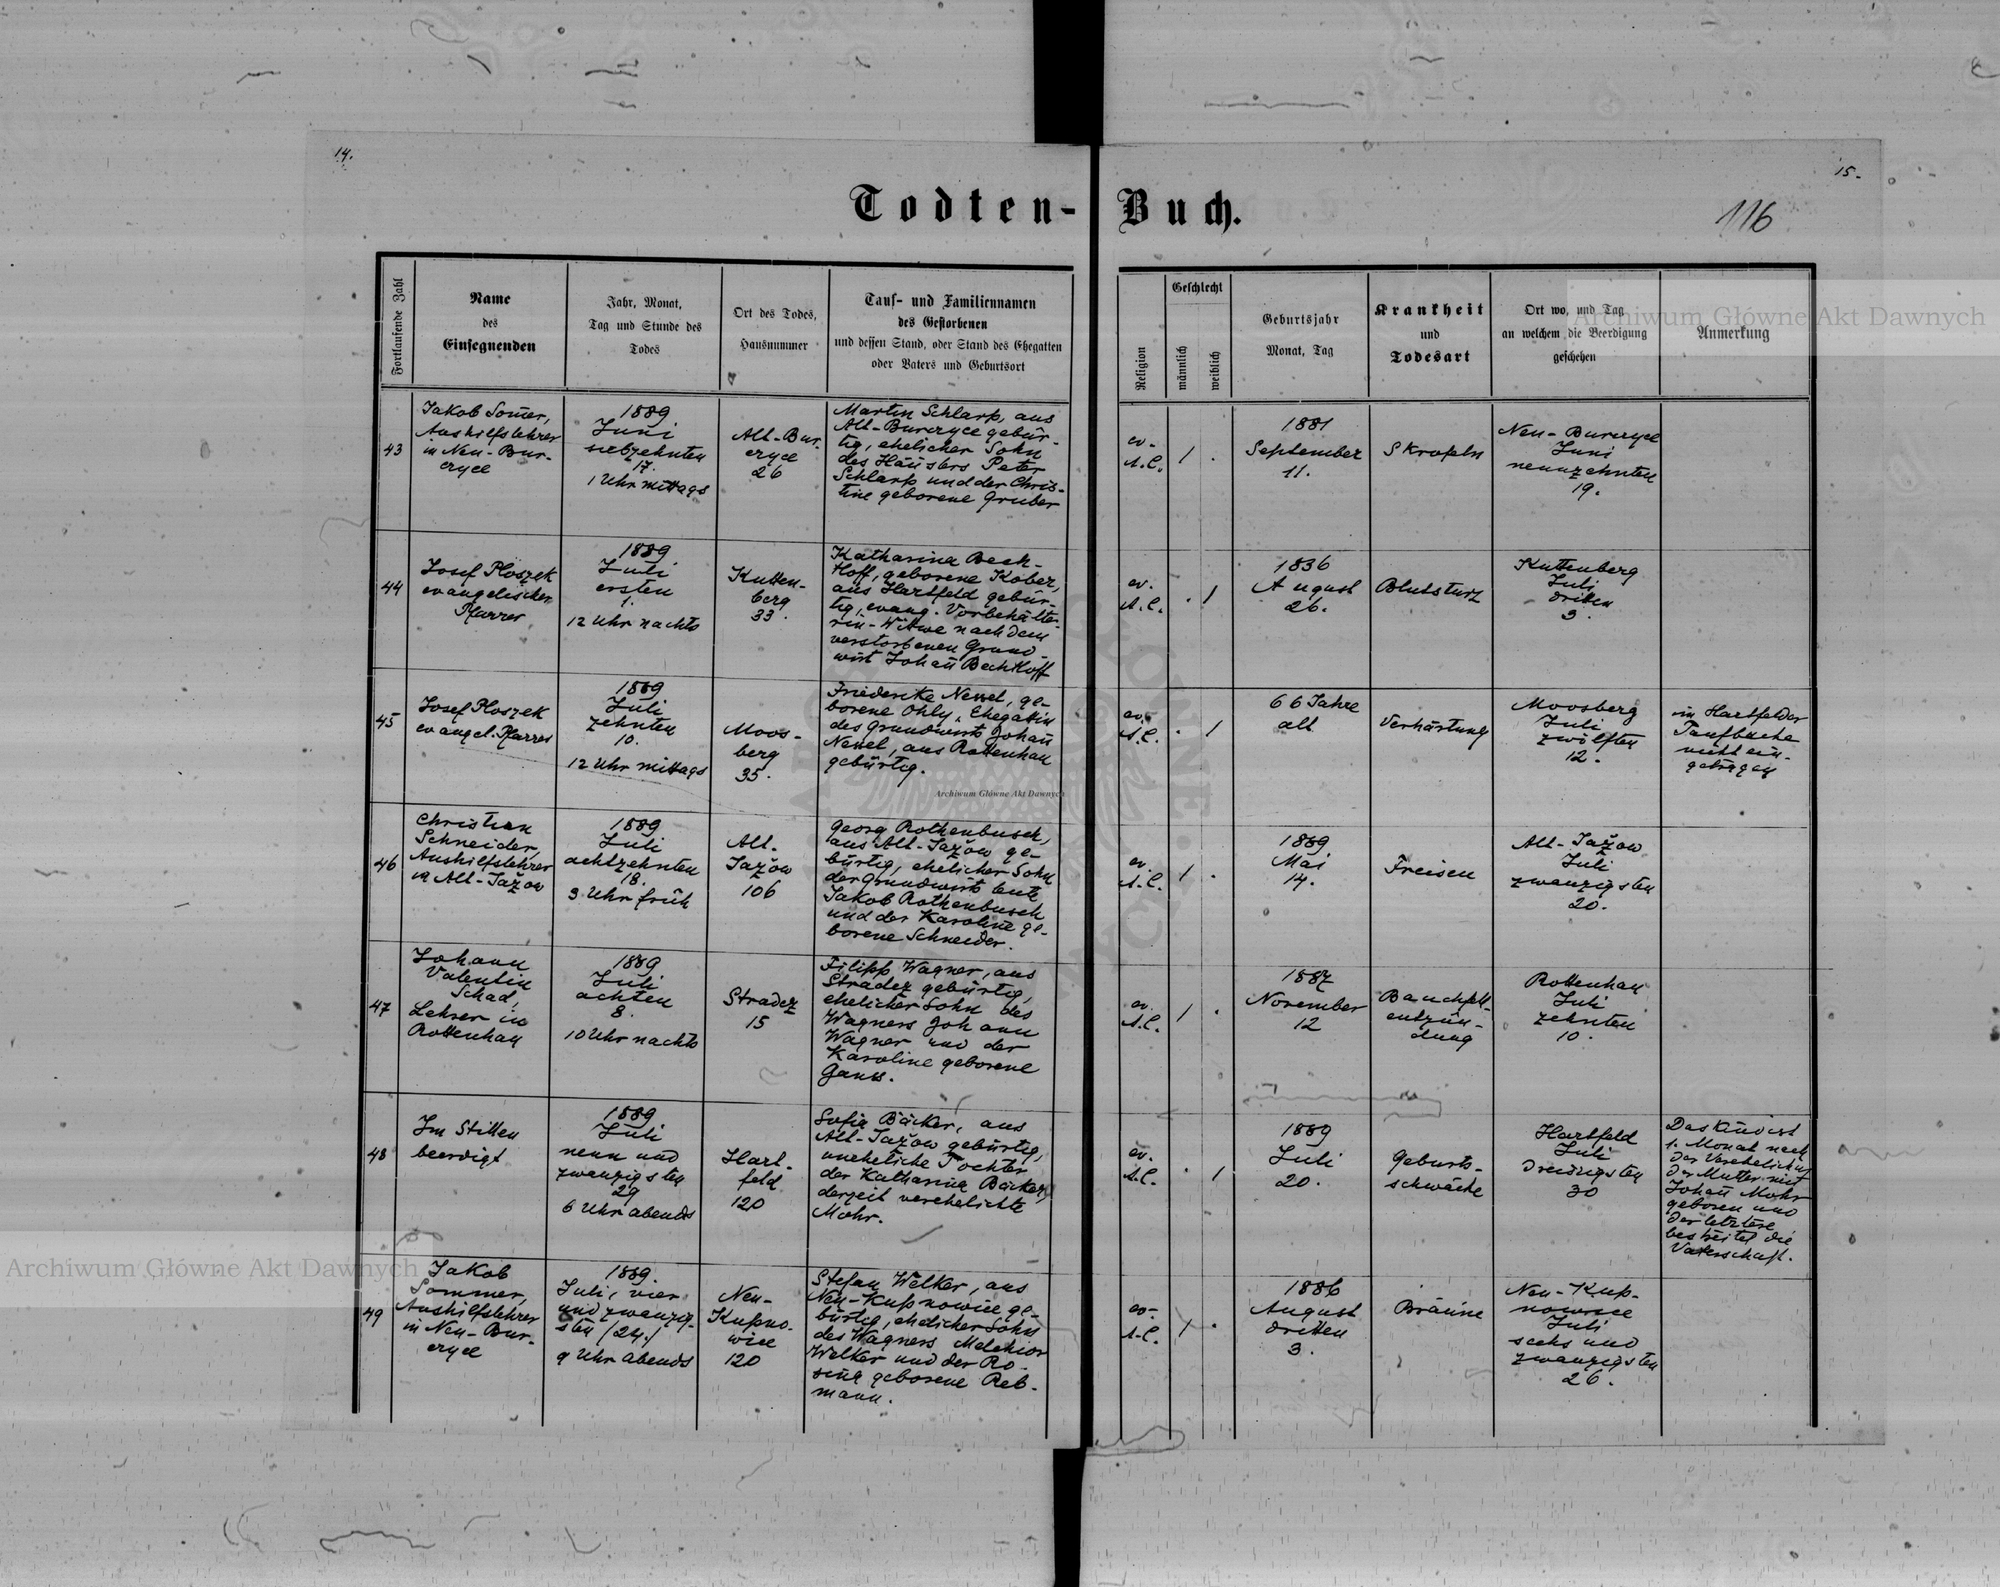 14.
15.
Todten-Buch.
116
Fortlaufende Zahl
Name
des
Einsegnenden
Jahr, Monat,
Tag und Stunde des
Todes
Ort des Todes,
Hausnummer
Tauf- und Familiennamen
des Gestorbenen
und dessen Stand, oder Stand des Ehegatten
oder Vaters und Geburtsort
Religion
Geschlecht
männlich
weiblich
Geburtsjahr
Monat, Tag
Krankheit
und
Todesart
Ort wo, und Tag
an welchem die Beerdigung
geschehen
Anmerkung
43
Jakob Som̄er,
Aushilfslehrer
in Neu-Bur-
czyce
1889
Juni
siebzehnten
17.
1 Uhr mittags
Alt-Bur-
czyce
26
Martin Schlarp, aus
Alt-Burczyce gebür-
tig, ehelicher Sohn
des Häuslers Peter
Schlarp und der Chris-
tine geborene Gruber
ev.
A.C.
1 .
1881
September
11.
Skrofeln
Neu-Burczyce
Juni
neunzehnten
19.
44
Josef Ploszek
evangelischer
Pfarrer
1889
Juli
ersten
1.
12 Uhr nachts
Kutten-
berg
33.
Katharina Bech-
tloff, geborene Kober,
aus Hartfeld gebür-
tig, evang. Vorbehälte-
rin-Witwe nach dem
verstorbenen Grund-
wirt Johan̄ Bechtloff
ev.
A.C.
. 1
1836
August
26.
Blutsturz
Kuttenberg
Juli
dritten
3.
45
Josef Ploszek
evangel. Pfarrer
1889
Juli
zehnten
10.
12 Uhr mittags
Moos-
berg
35.
Friedericke Nessel, ge-
borene Ohly, Ehegattin
des Grundwirts Johan̄
Nessel, aus Rottenhan
gebürtig.
ev.
A.C.
. 1
66 Jahre
alt
Verhärtung
Moosberg
Juli
zwölften
12.
in Hartfelder
Taufbuche
nicht ein-
getragen
46
Christian
Schneider,
Aushilfslehrer
in Alt-Jažow
1889
Juli
achtzehnten
18.
3 Uhr früh
Alt-
Jažow
106
Georg Rothenbusch,
aus Alt-Jažow ge-
bürtig, ehelicher Sohn
der Grundwirts leute
Jakob Rothenbusch
und der Karoline ge-
borene Schneider.
ev.
A.C.
1 .
1889
Mai
14.
Freisen
Alt-Jažow
Juli
zwanzigsten
20.
47
Johann
Valentin
Schad,
Lehrer in
Rottenhan
1889
Juli
achten
8.
10 Uhr nachts
Stradcz
15
Filipp Wagner, aus
Stradcz gebürtig,
ehelicher Sohn des
Wagners Johann
Wagner und der
Karoline geborene
Ganss.
ev.
A.C.
1 .
1887
November
12
Bauchfell-
entzün-
dung
Rottenhan
Juli
zehnten
10.
48
Im Stillen
beerdigt
1889
Juli
neun und
zwanzigsten
29
6 Uhr abends
Hart-
feld
120
Sofia Bäcker, aus
Alt-Jažow gebürtig,
uneheliche Tochter
der Katharina Bäcker,
derzeit verehelichte
Mohr.
ev.
A.C.
. 1
1889
Juli
20.
Geburts-
schwäche
Hartfeld
Juli
dreizigsten
30
Das Kind ist
1. Monat nach
der Verehelichung
der Mutter mit
Johan̄ Mohr
geboren und
der letztere
bestreitet die
Vaterschaft.
49
Jakob
Sommer,
Aushilfslehrer
in Neu-Bur-
czyce
1889.
Juli, vier
und zwanzig-
sten /24./
9 Uhr abends
Neu-
Kupno-
wice
120
Stefan Welker, aus
Neu-Kupnowice ge-
bürtig, ehelicher Sohn
des Wagners Melchior
Welker und der Ro-
sina geborene Reb-
mann.
ev.
A.C.
1 .
1886
August
dritten
3.
Bräune
Neu-Kup-
nowice
Juli
sechs und
zwanzigsten
26.
Archiwum Główne Akt Dawnych
Archiwum Główne Akt Dawnych
Archiwum Główne Akt Dawnych